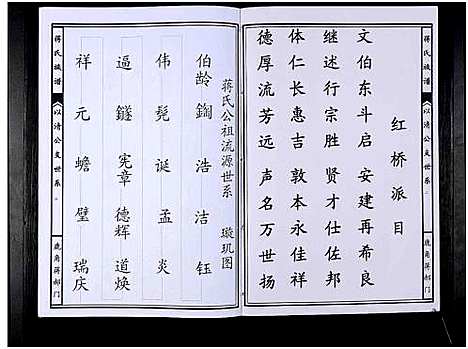 蒋氏族谱
以清公支世系
鹿角蒋郝门
红桥派目
文伯东斗启 安建再希良
继述行宗胜 贤才仕佐邦
体仁长惠吉 敦本永佳祥
德厚流芳远 声名万世扬
蒋氏公祖流源世系 璇玑图
伯龄 鋾 浩 洁 钰
伟 髡 诞 孟 炎
逼 鐩 宪章 德辉 道焕
祥 元 蟾 璧 瑞庆
蒋氏族谱
以清公支世系
鹿角蒋郝门